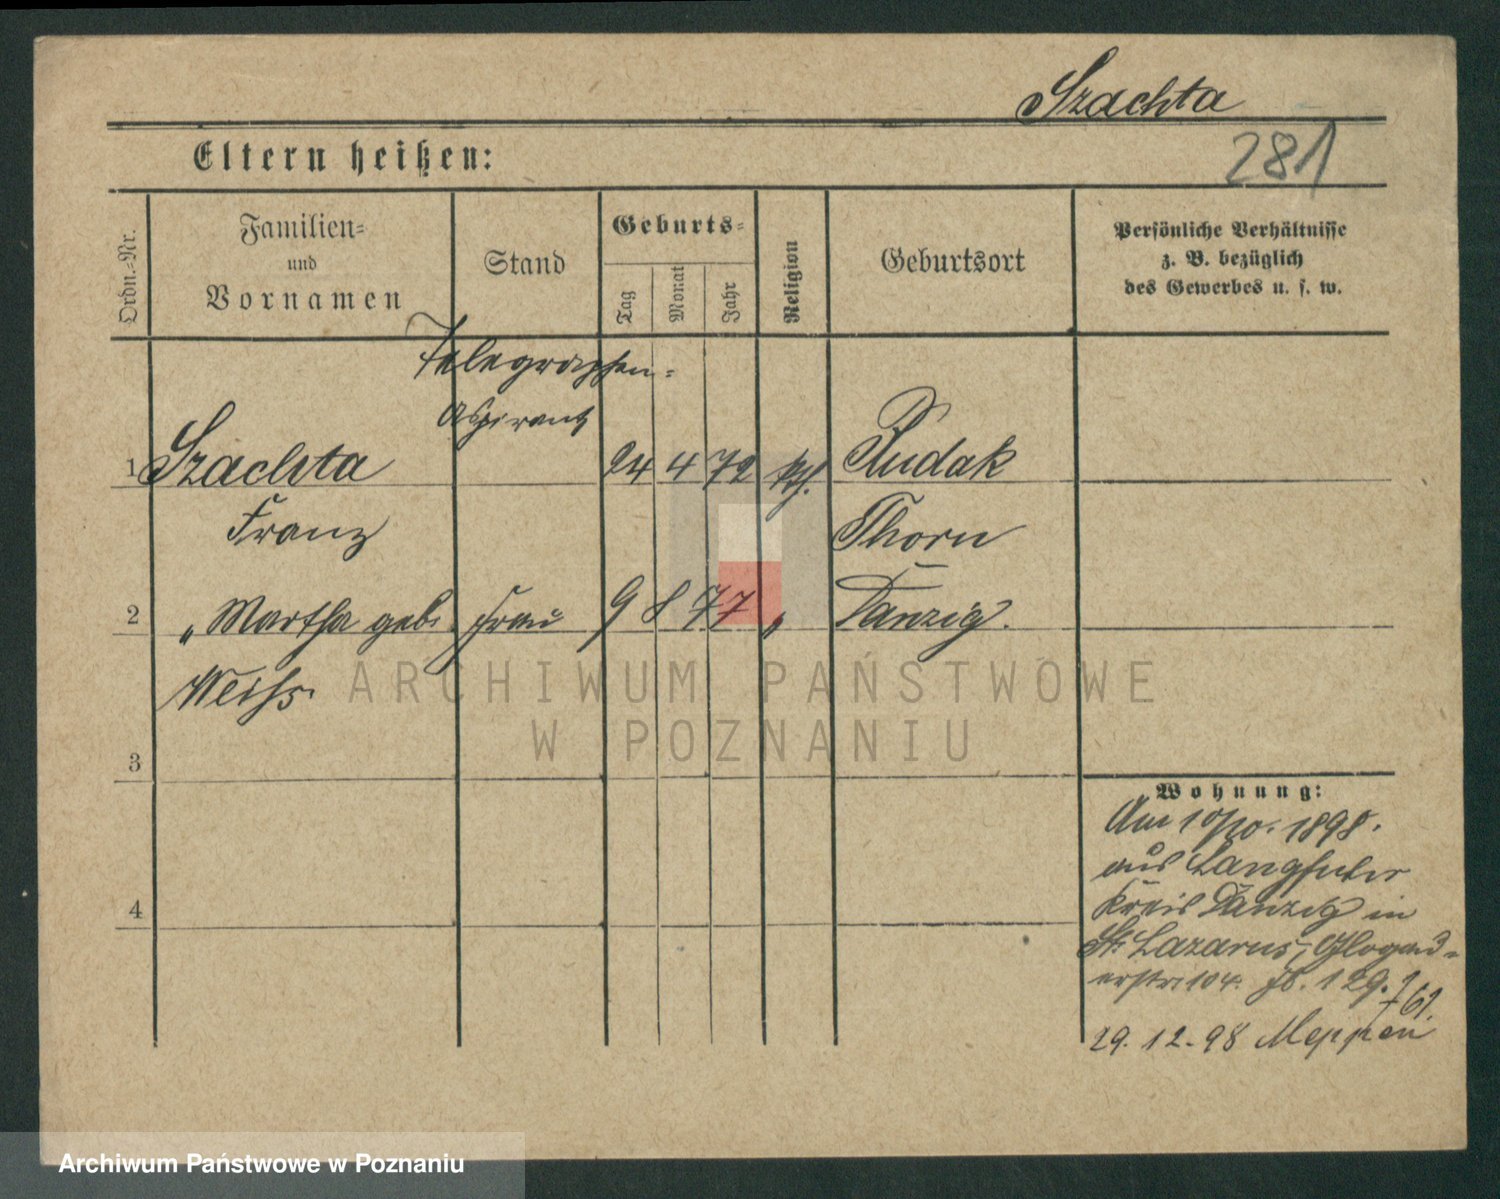 Szachta
281
Eltern heißen:
Ordn.-Nr.
Familien-
und
Vornamen
Stand
Geburts-
Tag
Monat
Jahr
Religion
Geburtsort
Persönliche Verhältnisse
z. B. bezüglich
des Gewerbes u. s. w.
Telegraphen-
Aspirant
1 Szachta 24 4 72 kth. Rudak
Franz Thorn
2 " Martha geb. Frau 9 8 77 " Danzig.
Weiß
3
4
Wohnung:
Am 10/10. 1898.
aus Langfuhr
Kreis Danzig in
St. Lazarus, Glogau-
erstr. 104. 129.
29. 12. 98 Meppen
ARCHIWUM PAŃSTWOWE
W POZNANIU
Archiwum Państwowe w Poznaniu